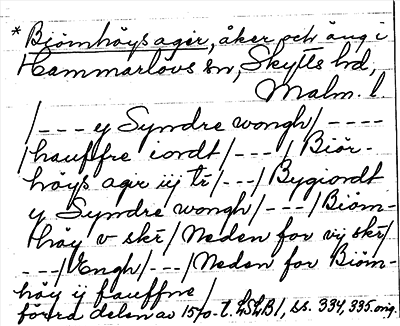 * Biömhöys ager, åker och äng i
Hammarlövs sn, Skytts hd,
Malm. l.
/--- y Syndre wongh/ ----
/hauffre iordt/---/ Biör-
höys ager iij tr/---/ Bygiordt
y Syndre wongh/---/ Biöm-
höy v skr/ Neden for vij skr/
---/ Engh/---/ Neden for Biöm-
höy ij fauffne /
förra delen av 15/0-t. LSLB1, ss. 334, 335. orig.